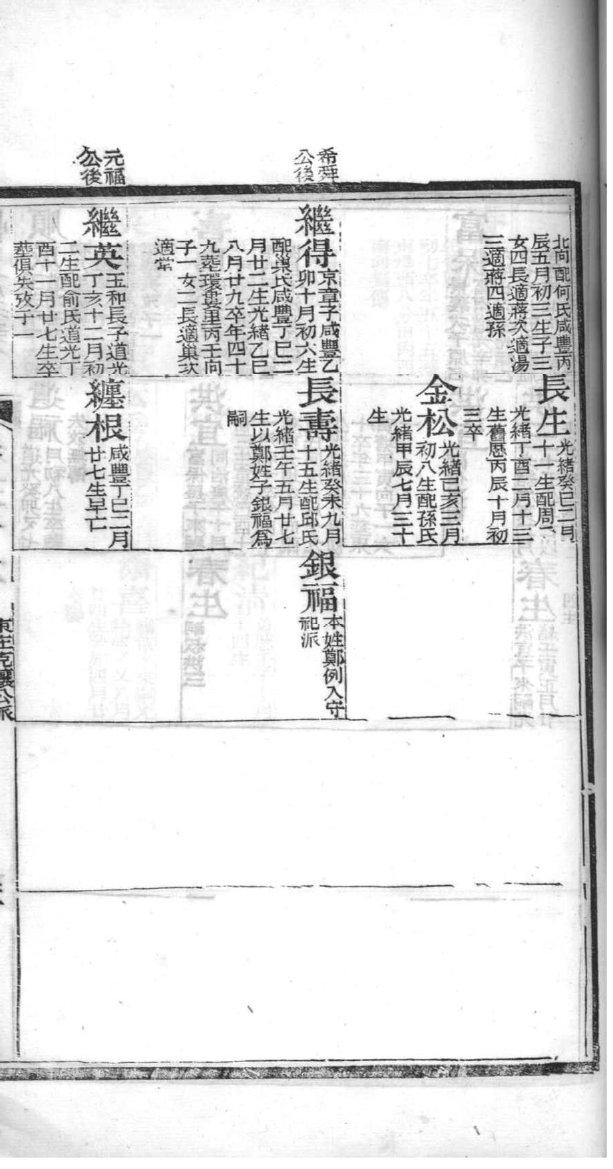 北向配何氏咸豐丙
辰五月初三生子三
女四長適蔣次適湯
三適蔣四適孫
希舜
公後
繼得
京章子咸豐乙
卯十月初六生
配巢氏咸豐丁巳二
月廿二生光緒乙巳
八月廿九卒年四十
九葬環舊里丙壬向
子一女二長適巢次
適常
元福
公後
繼英
玉和長子道光
丁亥十二月初
二生配俞氏道光丁
酉十一月廿七生卒
葬俱失攷子一
長生
光緒癸巳二月
十一生配周氏
光緒丁酉二月十三
生舊曆丙辰十月初
三卒
金松
光緒己亥三月
初八生配孫氏
光緒甲辰七月三十
生
長壽
光緒癸未九月
十五生配邱氏
光緒壬午五月廿七
生以鄭姓子銀福為
嗣
纏根
咸豐丁巳二月
廿七生早亡
銀福
本姓鄭例入守
祀派
東庄克讓公派